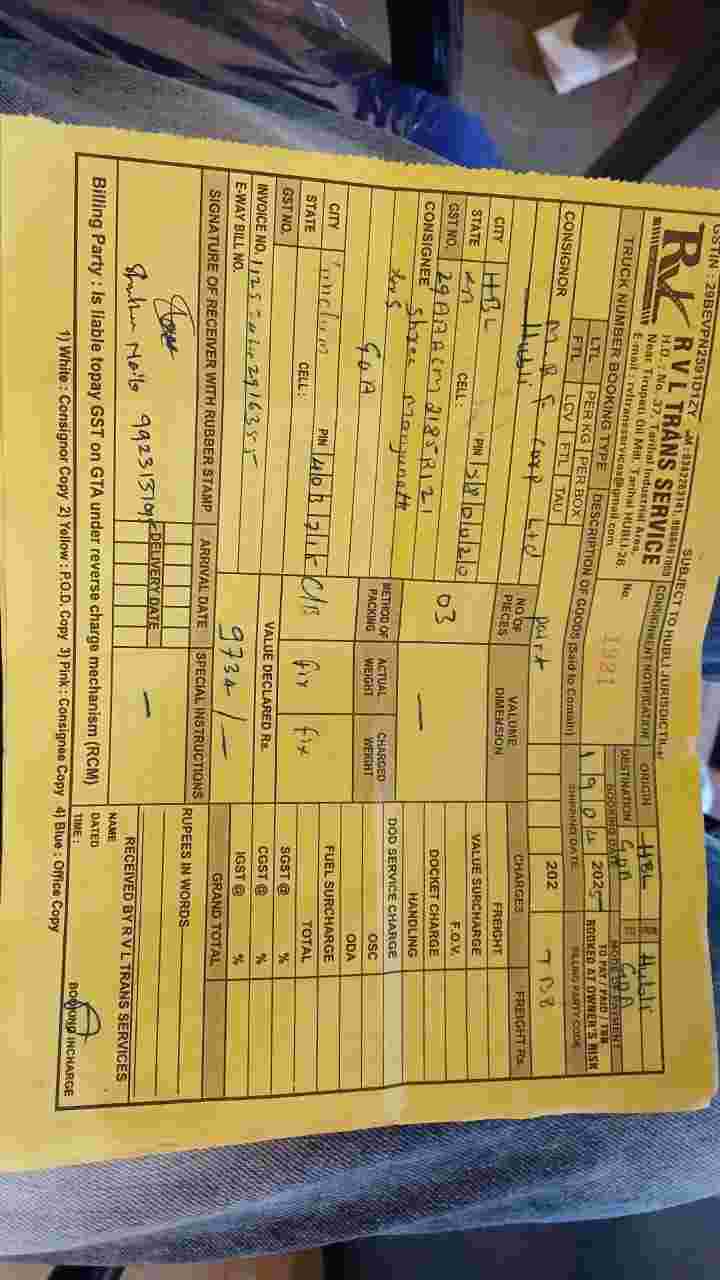 GSTIN : 29BEVPN2591D1ZY
SUBJECT TO HUBLI JURISDICTI
R V L TRANS SERVICE
H.O. : No. 37, Tarihal Industrial Area,
Near Tirupati Oil Mill, Tarihal HUBLI-26.
E-mail : rvltransservices@gmail.com
CONSIGNMENT NOTIFICATION
No. 1921
ORIGIN HBL FROM Hubli
DESTINATION GOA TO GOA
TRUCK NUMBER BOOKING TYPE
LTL PER KG PER BOX
FTL LCV FTL TAU
DESCRIPTION OF GOODS (Said to Contain)
Paint
BOOKING DATE
1 9 0 4 2025
SHIPPING DATE
202
MODE OF PAYMENT
TO PAY / PAID / TBB
BOOKED AT OWNER'S RISK
BILLING PARTY CODE
TBB
CONSIGNOR M R F Corp Ltd
Hubli
CITY HBL PIN 580020
STATE KA CELL :
GST NO. 29AAACM2185R1Z1
CONSIGNEE Shree Manjunath
GOA
CITY PIN
STATE CELL :
GST NO.
INVOICE NO.
E-WAY BILL NO.
NO OF PIECES 03
VALUME DIMENSION —
METHOD OF PACKING C/B
ACTUAL WEIGHT fix
CHARGED WEIGHT fix
VALUE DECLARED Rs.
9734/-
CHARGES FREIGHT Rs.
FREIGHT
VALUE SURCHARGE
F.O.V.
DOCKET CHARGE
HANDLING
DOD SERVICE CHARGE
OSC
ODA
FUEL SURCHARGE
TOTAL
SGST @ %
CGST @ %
IGST @ %
GRAND TOTAL
SIGNATURE OF RECEIVER WITH RUBBER STAMP
ARRIVAL DATE
DELIVERY DATE
SPECIAL INSTRUCTIONS
—
RUPEES IN WORDS
RECEIVED BY R V L TRANS SERVICES
NAME
DATED
TIME :
BOOKING INCHARGE
Billing Party : Is liable topay GST on GTA under reverse charge mechanism (RCM)
1) White : Consignor Copy 2) Yellow : P.O.D. Copy 3) Pink : Consignee Copy 4) Blue : Office Copy